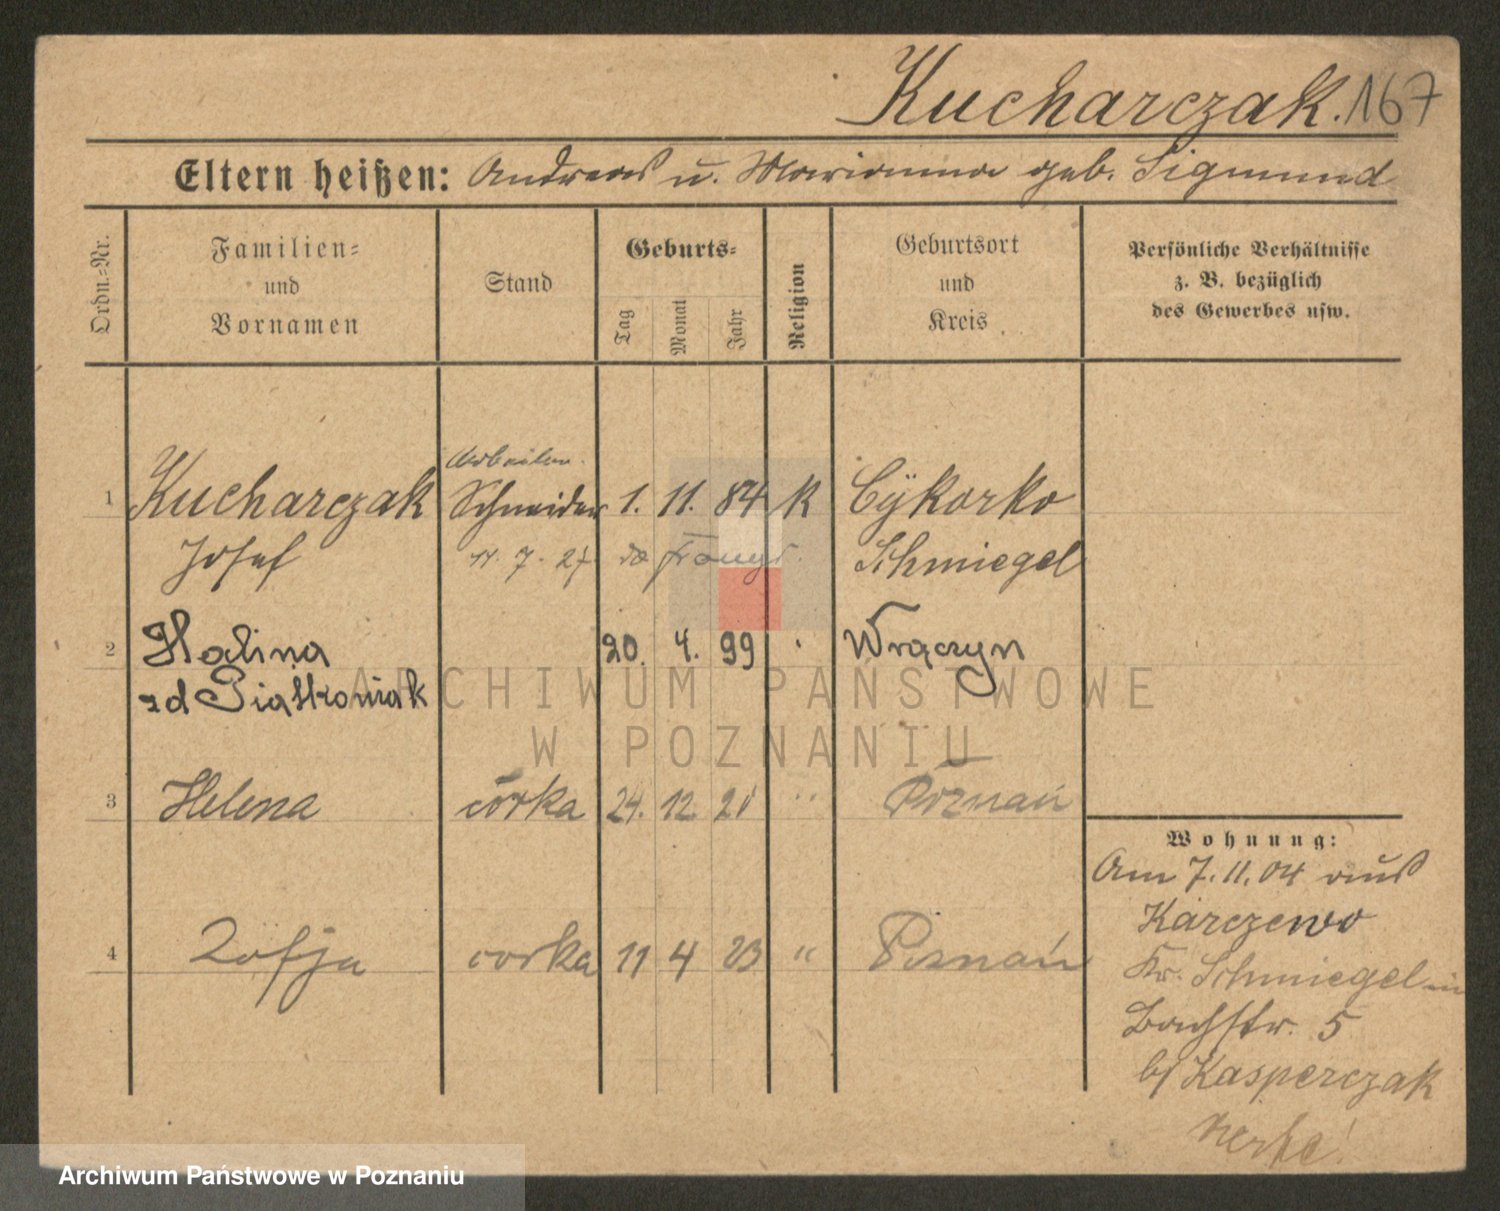 Kucharczak. 167
Eltern heißen: Andreas u. Marianna geb. Sigmund
Ordn.-Nr.
Familien-
und
Vornamen
Stand
Geburts-
Tag
Monat
Jahr
Religion
Geburtsort
und
Kreis
Persönliche Verhältnisse
z. B. bezüglich
des Gewerbes usw.
Arbeiter
1 Kucharczak Schneider 1. 11. 84 K Cykorko
Josef 7. 27. do Schmiegel
2 Halina 20. 4. 99 Wrączyn
zd Piątkowiak
ARCHIWUM PAŃSTWOWE
W POZNANIU
3 Helena córka 24. 12. 21 " Poznań
Wohnung:
Am 7. 11. 04 aus
Karczewo
4 Zofja corka 11 4 23 " Poznań
Kr. Schmiegel in
Bachstr. 5
b/ Kasperczak
Archiwum Państwowe w Poznaniu